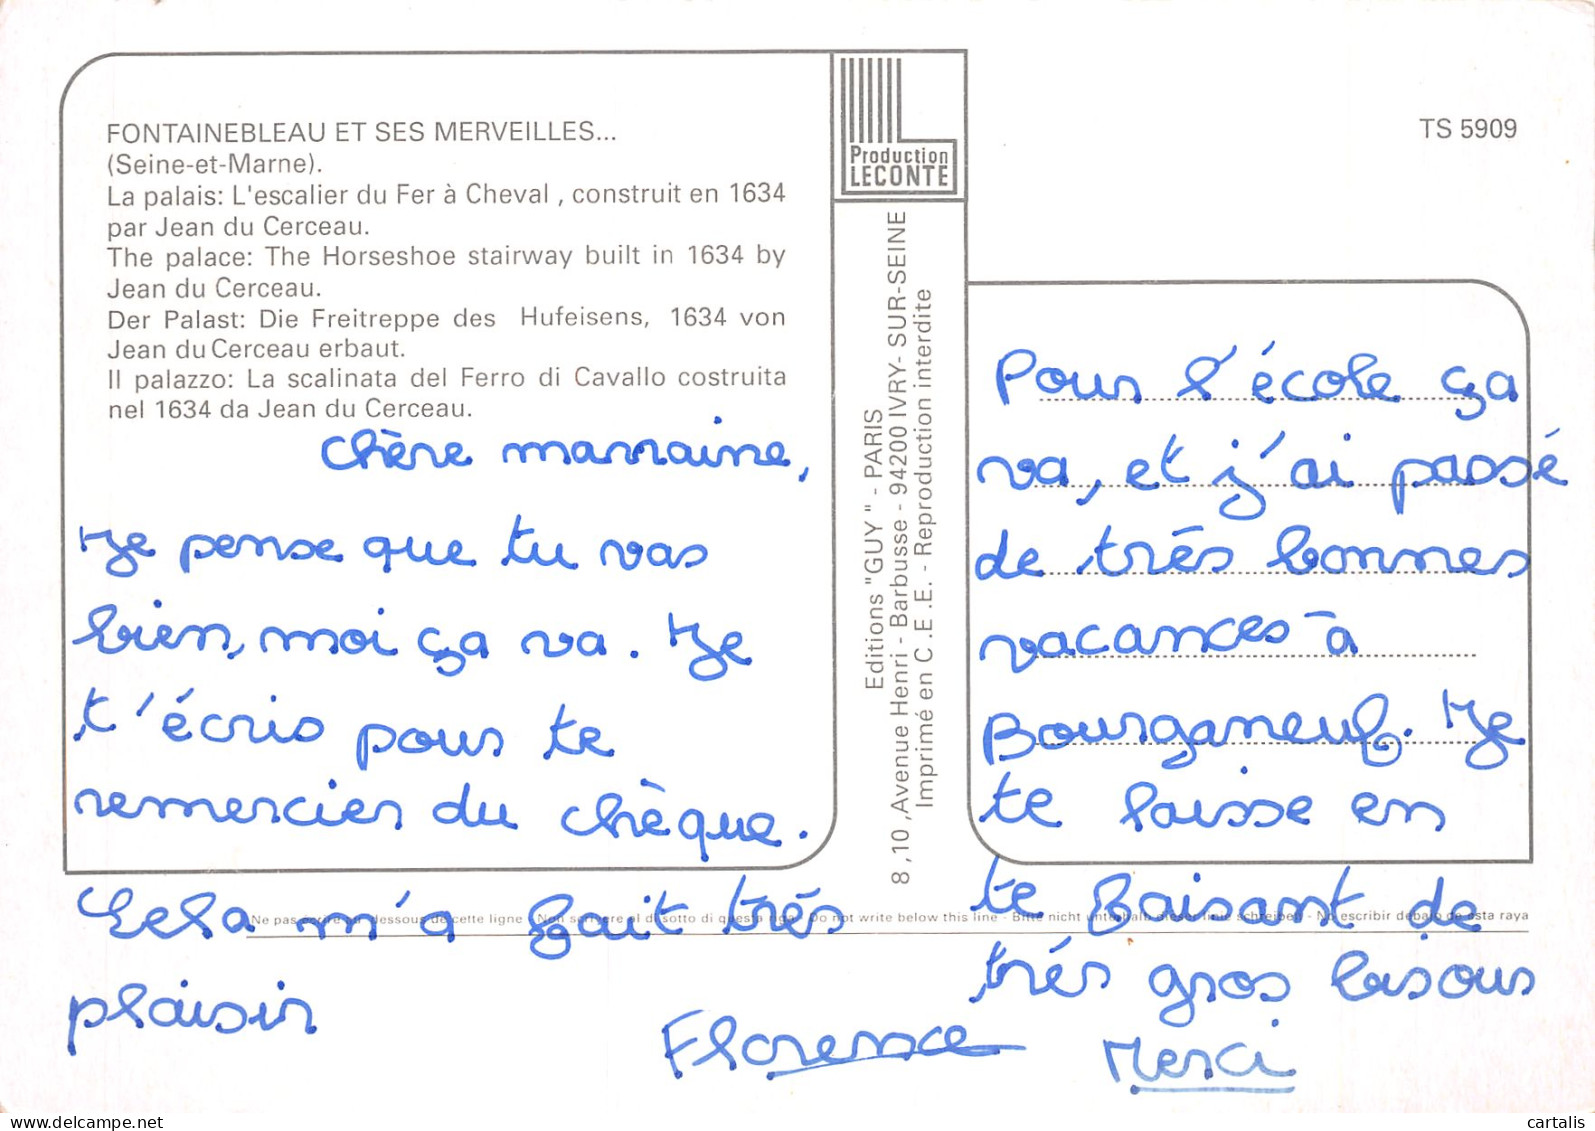 FONTAINEBLEAU ET SES MERVEILLES...
(Seine-et-Marne).
La palais: L'escalier du Fer à Cheval , construit en 1634
par Jean du Cerceau.
The palace: The Horseshoe stairway built in 1634 by
Jean du Cerceau.
Der Palast: Die Freitreppe des Hufeisens, 1634 von
Jean du Cerceau erbaut.
Il palazzo: La scalinata del Ferro di Cavallo costruita
nel 1634 da Jean du Cerceau.
chère marraine,
Je pense que tu vas
bien, moi ça va. Je
t'écris pour te
remercier du chèque.
Cela m'a fait très
plaisir
Production
LECONTE
Editions "GUY" - PARIS
8 ,10 ,Avenue Henri - Barbusse - 94200 IVRY- SUR-SEINE
Imprimé en C .E .E. - Reproduction interdite
TS 5909
Pour l'école ça
va, et j'ai passé
de trés bonnes
vacances à
Bourganeuf. Je
te laisse en
te baisant de
trés gros bisous
Florence
Merci
Ne pas écrire au dessous de cette ligne - Non scrivere al disotto di questa riga - Do not write below this line - Bitte nicht unterhalb dieser linie schreiben - No escribir debajo de esta raya
www.delcampe.net
cartalis